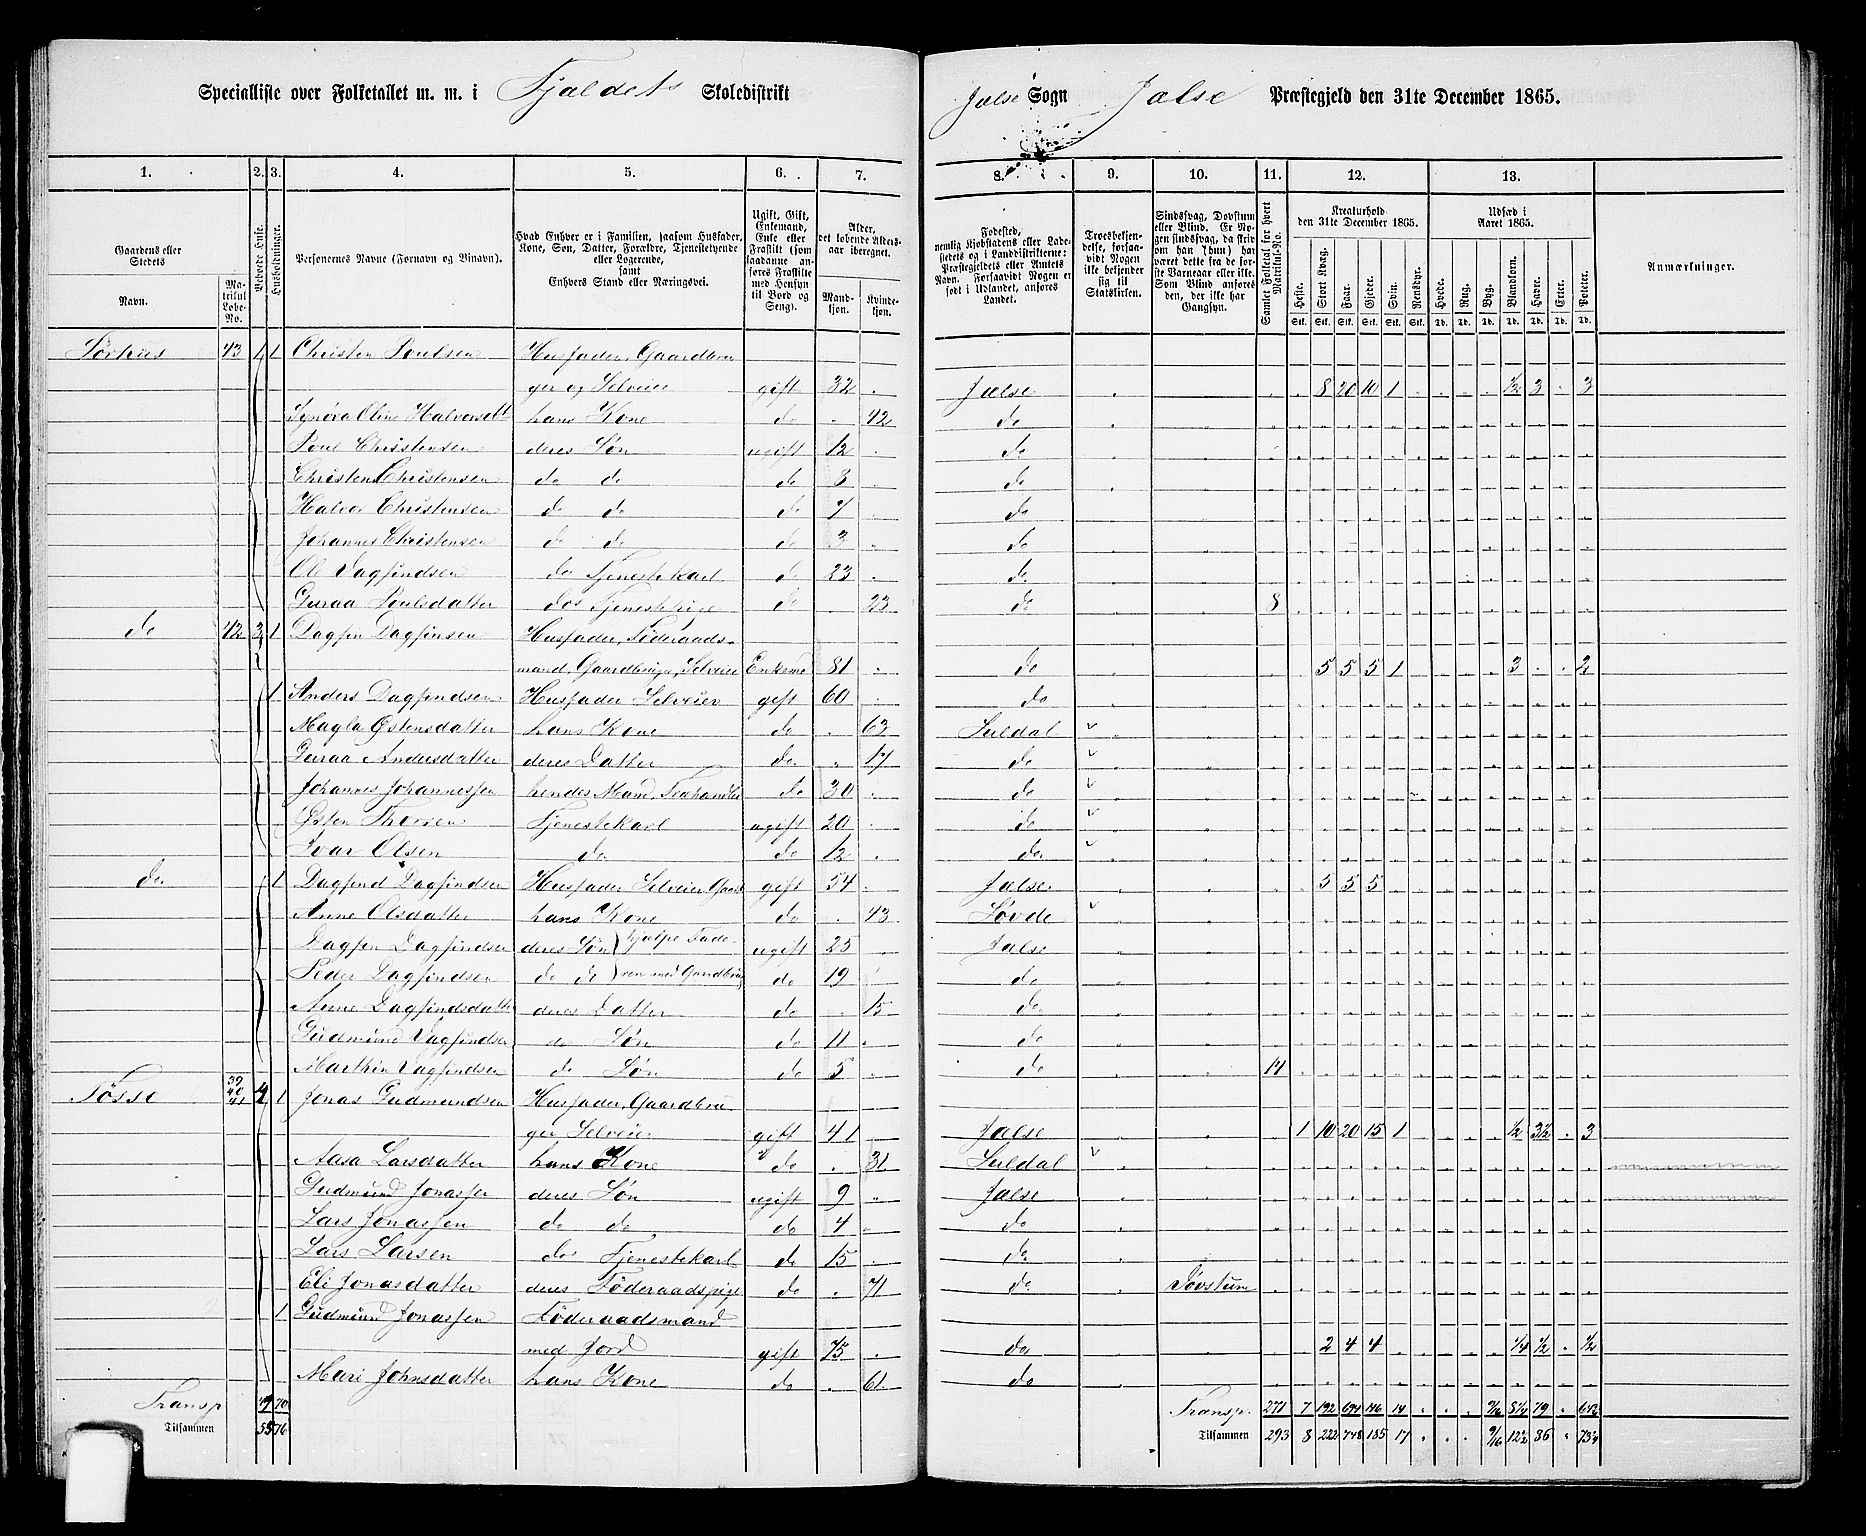 Specialliste over Folketallet m. m. i Fjældets Skoledistrikt Jælse Sogn Jælse Præstegjeld den 31te December 1865.
1. 2. 3. 4. 5. 6. 7. 8. 9. 10. 11. 12. 13.
Gaardens eller Stedets Navn. Matrikul Løbe-No. Beboede Huse. Husholdninger. Personernes Navne (Fornavn og Tilnavn). Hvad Enhver er i Familien, saasom Husfader, Kone, Søn, Datter, Forældre, Tjenestetyende eller Logerende, samt Enhvers Stand eller Næringsvei. Ugift, Gift, Enkemand, Enke eller Fraskilt (som saadanne anføres Fraskilte med Hensyn til Bord og Seng). Alder, det løbende Aldersaar iberegnet. Mandkjøn. Kvindekjøn.
Fødested, nemlig Kjøbstadens eller Ladestedets og i Landdistrikterne: Præstegjeldets eller Amtets Navn. Forsaavidt Nogen er født i Udlandet, anføres Landet. Troesbekjendelse, forsaavidt Nogen ikke bekjender sig til Statskirken. Sindssvag, Døvstum eller Blind. Er Nogen sindssvag, da skrives om han (hun) har været dette fra de første Barneaar eller ikke. Som Blind anføres den, der ikke har Gangsyn. Samlet Folketal for hvert Matrikul-No. Kreaturhold den 31te December 1865. Heste. Stort Kvæg. Faar. Gjeder. Svin. Rensdyr. Udsæd i Aaret 1865. Hvede. Rug. Byg. Blandkorn. Havre. Erter. Poteter. Anmærkninger.
Stk. Stk. Stk. Stk. Stk. Stk. Td. Td. Td. Td. Td. Td. Td.
Sørhus 43 1 1 Christen Poulsen Husfader, Gaardbru
ger og Selveier gift 32 Jælse 8 20 10 1 ½ 3 3
Synøva Oline Halversdtt hans Kone do 42 do
Poul Christensen deres Søn ugift 12 do
Christen Christensen do do do 8 do
Halvor Christensen do do do 7 do
Johannes Christensen do do do 3 do
Ole Dagfindsen do Tjenestekarl do 23 do
Guraa Poulsdatter do Tjenestepige do 23 do 8
do 42 2 1 Dagfin Dagfinsen Husfader, Föderaads-
mand, Gaardbruger, Selveier Enkema 81 do 5 5 5 1 3 2
1 Anders Dagfindsen Husfader Selveier gift 60 do
Magla Østensdatter hans Kone do 63 Suldal v
Guraa Andersdatter deres Datter do 17 do v
Johannes Johannessen hendes Mand, Træhandler do 30 do v
Østen Tjenestekarl ugift 20 do v
Ivar Olsen do do 12 do v
do 1 Dagfind Dagfindsen Husfader Selveier Gaard gift 54 Jælse 5 5 5
Anne Olsdatter hans Kone do 43 Søvde v
Dagfin Dagfindsen deres Søn hjælpe Fade- ugift 25 Jælse
Peder Dagfindsen do do ren med Gaardbrug do 19 do
Anne Dagfindsdatter deres Datter do 15 do
Gudmund Dagfindsen do Søn do 11 do
Marthin Dagfindsen do Søn do 5 do 14
Tösse 39 40 41 4 1 Jonas Gudmundsen Husfader, Gaardbru
ger Selveier gift 41 Jælse 1 10 20 15 1 ½ 3½ 3
Aasa Larsdatter hans Kone do 31 Suldal v
Gudmund Jonassen deres Søn ugift 9 Jælse
Lars Jonassen do do do 4 do
Lars Larsen do Tjenestekarl do 15 do
Eli Jonasdatter deres Föderaadspige do 71 do Døvstum
1 Gudmund Jonassen Föderaadsmand
med Jord gift 75 do 2 4 4 ¼ ½ ½
Mari Johnsdatter hans Kone do 61 do
Transp 70 Transp. 271 7 192 694 146 14 79
Tilsammen 76 Tilsammen 293 8 222 748 185 17 9/16 12½ 86